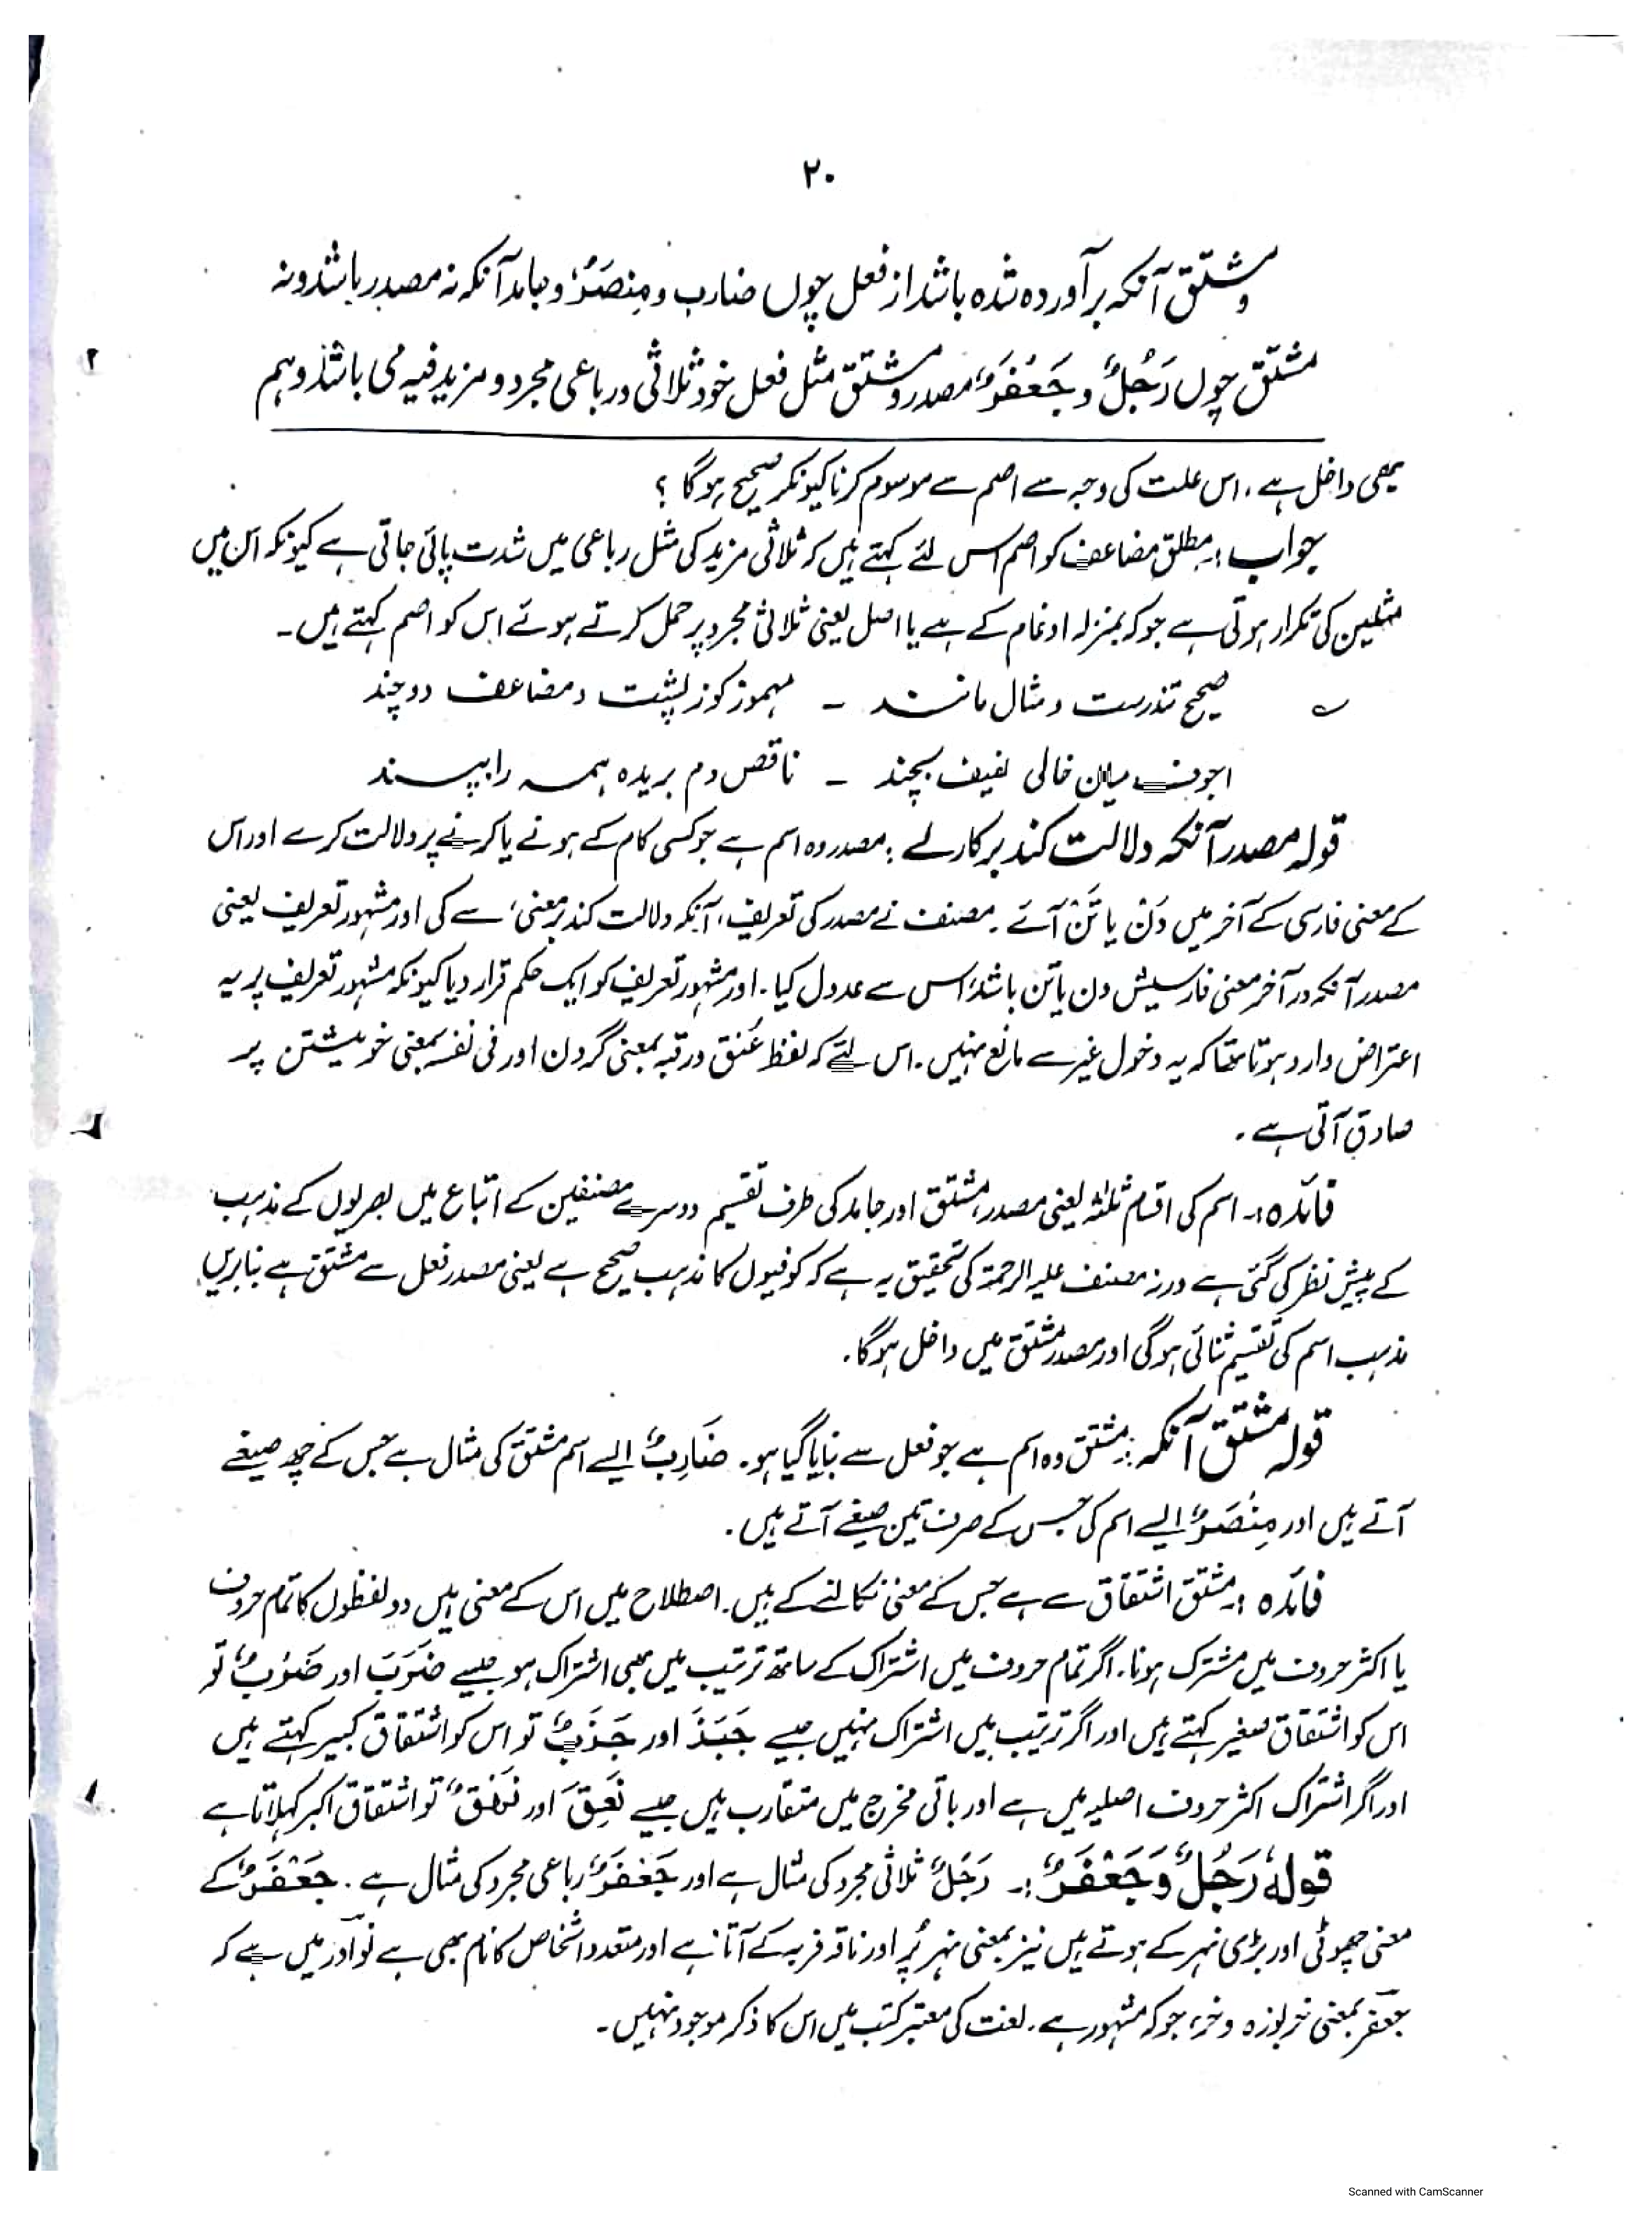 ۲۰
ومشتق آنکہ برآوردہ شدہ باشد از فعل چوں ضارب ومِنصَرٌ، وجامد آنکہ نہ مصدر باشد ونہ
مشتق چوں رَجُلٌ وجَعْفَرٌ، مصدر ومشتق مثل فعل خود ثلاثی ورباعی مجرد ومزید فیہ می باشند وہم
بھی داخل ہے، اس علت کی وجہ سے اصم سے موسوم کرنا کیونکر صحیح ہوگا ؟
جواب :۔ مطلق مضاعف کو اصم اس لئے کہتے ہیں کہ ثلاثی مزید کی مثل رباعی میں شدت پائی جاتی ہے کیونکہ اس میں
مثلین کی تکرار ہوتی ہے جو کہ بمنزلہ ادغام کے ہے یا اصل یعنی ثلاثی مجرد پر حمل کرتے ہوئے اس کو اصم کہتے ہیں۔
صحیح تندرست و مثال مانند ۔ مہموز کوز پشت ومضاعف دوچند
اجوف میان خالی لفیف پیچند ۔ ناقص دم بریدہ ہمہ را پسند
قولہ مصدر آنکہ دلالت کند بر کارے :۔ مصدر وہ اسم ہے جو کسی کام کے ہونے یا کرنے پر دلالت کرے اور اس
کے معنی فارسی کے آخر میں دَنْ یا تَنْ آئے ۔ مصنف نے مصدر کی تعریف، آنکہ دلالت کند بر معنی، سے کی اور مشہور تعریف یعنی
مصدر آنکہ در آخر معنی فارسیش دن یا تن باشد، اس سے عدول کیا ۔ اور مشہور تعریف کو ایک حکم قرار دیا کیونکہ مشہور تعریف پر یہ
اعتراض وارد ہوتا تھا کہ یہ دخول غیر سے مانع نہیں ۔ اس لئے کہ لفظ عُنق ورقبہ بمعنی گردن اور فی نفسہ بمعنی خویشتن پر
صادق آتی ہے ۔
فائدہ :۔ اسم کی اقسام ثلثہ یعنی مصدر، مشتق اور جامد کی طرف تقسیم دوسرے مصنفین کے اتباع میں بصریوں کے مذہب
کے پیش نظر کی گئی ہے ورنہ مصنف علیہ الرحمۃ کی تحقیق یہ ہے کہ کوفیوں کا مذہب صحیح ہے یعنی مصدر فعل سے مشتق ہے بنابریں
مذہب اسم کی تقسیم ثنائی ہوگی اور مصدر مشتق میں داخل ہوگا ۔
قولہ مشتق آنکہ :۔ مشتق وہ اسم ہے جو فعل سے بنایا گیا ہو ۔ ضَارِبٌ ایسے اسم مشتق کی مثال ہے جس کے چھ صیغے
آتے ہیں اور مِنْصَرٌ ایسے اسم کی جس کے صرف تین صیغے آتے ہیں ۔
فائدہ :۔ مشتق اشتقاق سے ہے جس کے معنی نکالنے کے ہیں ۔ اصطلاح میں اس کے معنی ہیں دو لفظوں کا تمام حروف
یا اکثر حروف میں مشترک ہونا ۔ اگر تمام حروف میں اشتراک کے ساتھ ترتیب میں بھی اشتراک ہو جیسے ضَرَبَ اور ضَرْبٌ تو
اس کو اشتقاق صغیر کہتے ہیں اور اگر ترتیب میں اشتراک نہیں جیسے جَبَذَ اور جَذْبٌ تو اس کو اشتقاق کبیر کہتے ہیں
اور اگر اشتراک اکثر حروف اصلیہ میں ہے اور باقی مخرج میں متقارب ہیں جیسے نَعَقَ اور نَهْقٌ تو اشتقاق اکبر کہلاتا ہے
قولہٗ رَجُلٌ وَجَعْفَرٌ :۔ رَجُلٌ ثلاثی مجرد کی مثال ہے اور جَعْفَرٌ رباعی مجرد کی مثال ہے ۔ جَعْفَرٌ کے
معنی چھوٹی اور بڑی نہر کے ہوتے ہیں نیز بمعنی نہر پُر اور ناقہ فربہ کے آتا ہے اور متعدد اشخاص کا نام بھی ہے نوادر میں ہے کہ
جعفر بمعنی خربوزہ وخر، جو کہ مشہور ہے ۔ لغت کی معتبر کتب میں اس کا ذکر موجود نہیں ۔
Scanned with CamScanner